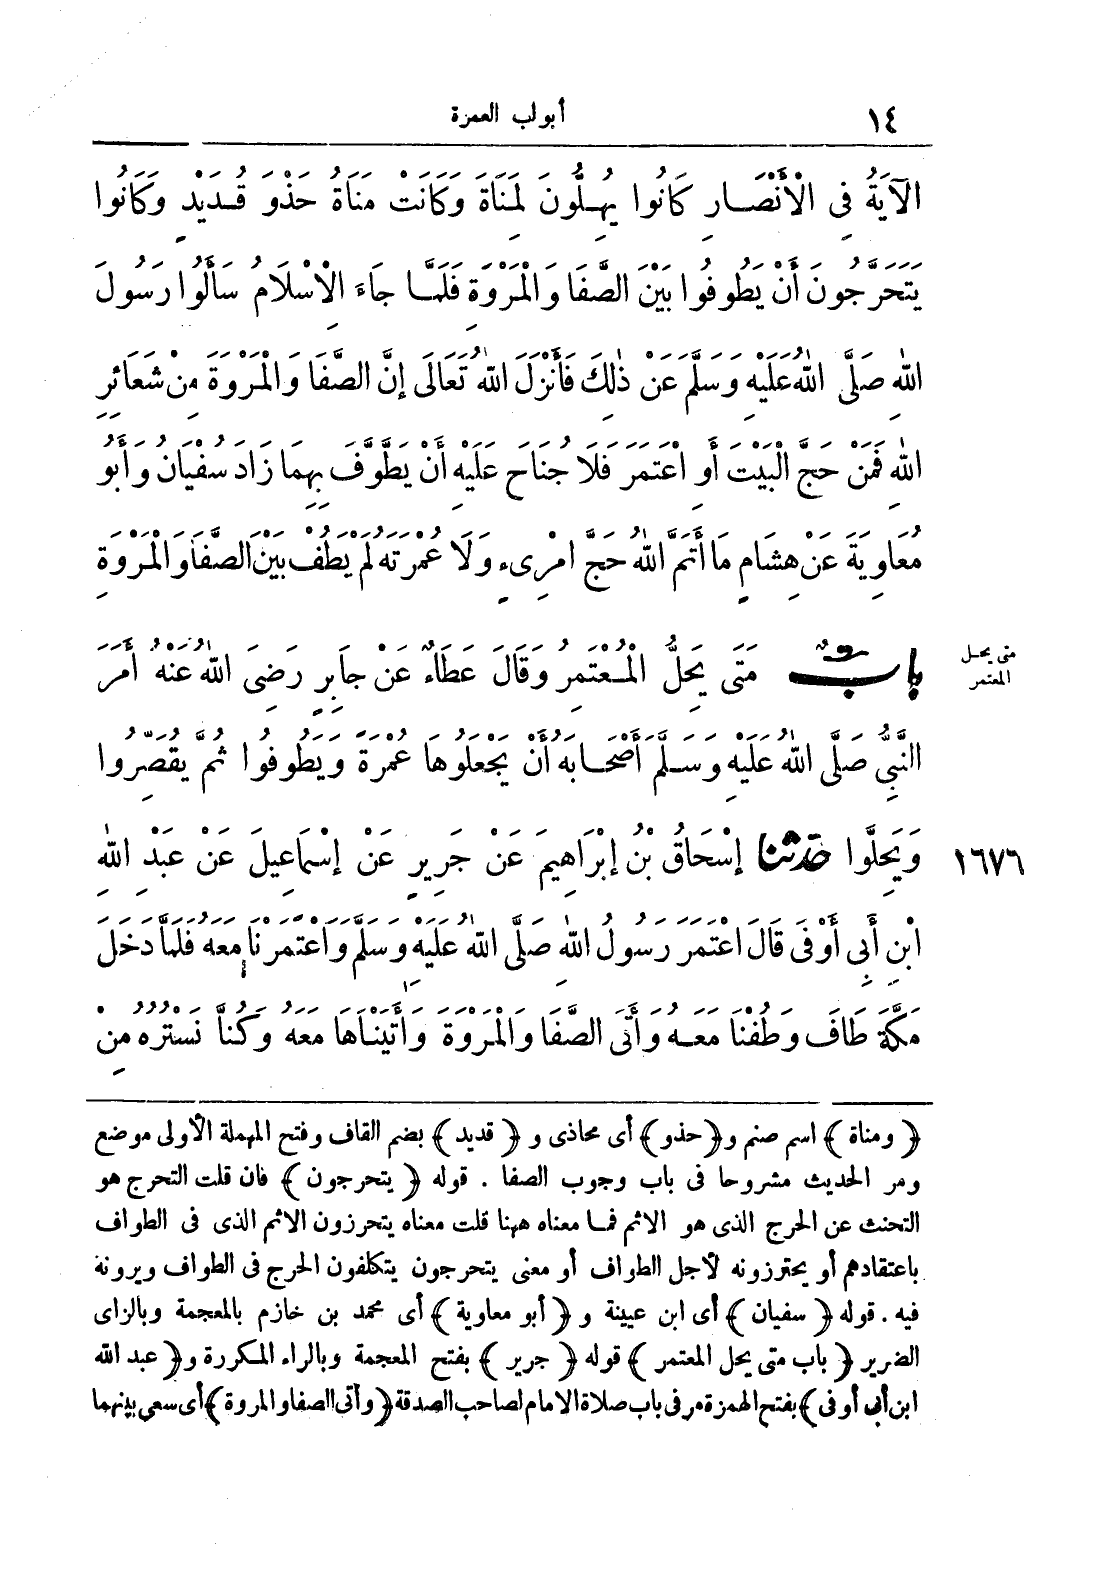 ١٤
أبواب العمرة
الْآيَةُ فِي الْأَنْصَارِ كَانُوا يُهِلُّونَ لِمَنَاةَ وَكَانَتْ مَنَاةُ حَذْوَ قُدَيْدٍ وَكَانُوا
يَتَحَرَّجُونَ أَنْ يَطُوفُوا بَيْنَ الصَّفَا وَالْمَرْوَةِ فَلَمَّا جَاءَ الْإِسْلَامُ سَأَلُوا رَسُولَ
اللهِ صَلَّى اللهُ عَلَيْهِ وَسَلَّمَ عَنْ ذٰلِكَ فَأَنْزَلَ اللهُ تَعَالَى إِنَّ الصَّفَا وَالْمَرْوَةَ مِنْ شَعَائِرِ
اللهِ فَمَنْ حَجَّ الْبَيْتَ أَوِ اعْتَمَرَ فَلَا جُنَاحَ عَلَيْهِ أَنْ يَطَّوَّفَ بِهِمَا زَادَ سُفْيَانُ وَأَبُو
مُعَاوِيَةَ عَنْ هِشَامٍ مَا أَتَمَّ اللهُ حَجَّ امْرِىءٍ وَلَا عُمْرَتَهُ لَمْ يَطُفْ بَيْنَ الصَّفَا وَالْمَرْوَةِ
متى يحل
المعتمر
بَابٌ مَتَى يَحِلُّ الْمُعْتَمِرُ وَقَالَ عَطَاءٌ عَنْ جَابِرٍ رَضِىَ اللهُ عَنْهُ أَمَرَ
النَّبِىُّ صَلَّى اللهُ عَلَيْهِ وَسَلَّمَ أَصْحَابَهُ أَنْ يَجْعَلُوهَا عُمْرَةً وَيَطُوفُوا ثُمَّ يُقَصِّرُوا
وَيَحِلُّوا حَدَّثَنَا إِسْحَاقُ بْنُ إِبْرَاهِيمَ عَنْ جَرِيرٍ عَنْ إِسْمَاعِيلَ عَنْ عَبْدِ اللهِ
١٦٧٦
ابْنِ أَبِى أَوْفَى قَالَ اعْتَمَرَ رَسُولُ اللهِ صَلَّى اللهُ عَلَيْهِ وَسَلَّمَ وَاعْتَمَرْنَا مَعَهُ فَلَمَّا دَخَلَ
مَكَّةَ طَافَ وَطُفْنَا مَعَهُ وَأَتَى الصَّفَا وَالْمَرْوَةَ وَأَتَيْنَاهَا مَعَهُ وَكُنَّا نَسْتُرُهُ مِنْ
﴿ ومناة ﴾ اسم صنم و﴿حذو﴾ أى محاذى و ﴿ قديد ﴾ بضم القاف وفتح المهملة الأولى موضع
ومر الحديث مشروحا فى باب وجوب الصفا . قوله ﴿ يتحرجون ﴾ فان قلت التحرج هو
التحنث عن الحرج الذى هو الاثم فما معناه ههنا قلت معناه يتحرزون الاثم الذى فى الطواف
باعتقادهم أو يحترزونه لأجل الطواف أو معنى يتحرجون يتكلفون الحرج فى الطواف ويرونة
فيه . قوله ﴿ سفيان ﴾ أى ابن عيينة و ﴿ أبو معاوية ﴾ أى محمد بن خازم بالمعجمة وبالزاى
الضرير ﴿ باب متى يحل المعتمر ﴾ قوله ﴿ جرير ﴾ بفتح المعجمة وبالراء المكررة و﴿ عبد الله
ابن أبى أوفى ﴾ بفتح الهمزة مر فى باب صلاة الامام لصاحب الصدقة ﴿ وأتى الصفا والمروة ﴾ أى سعى بينهما